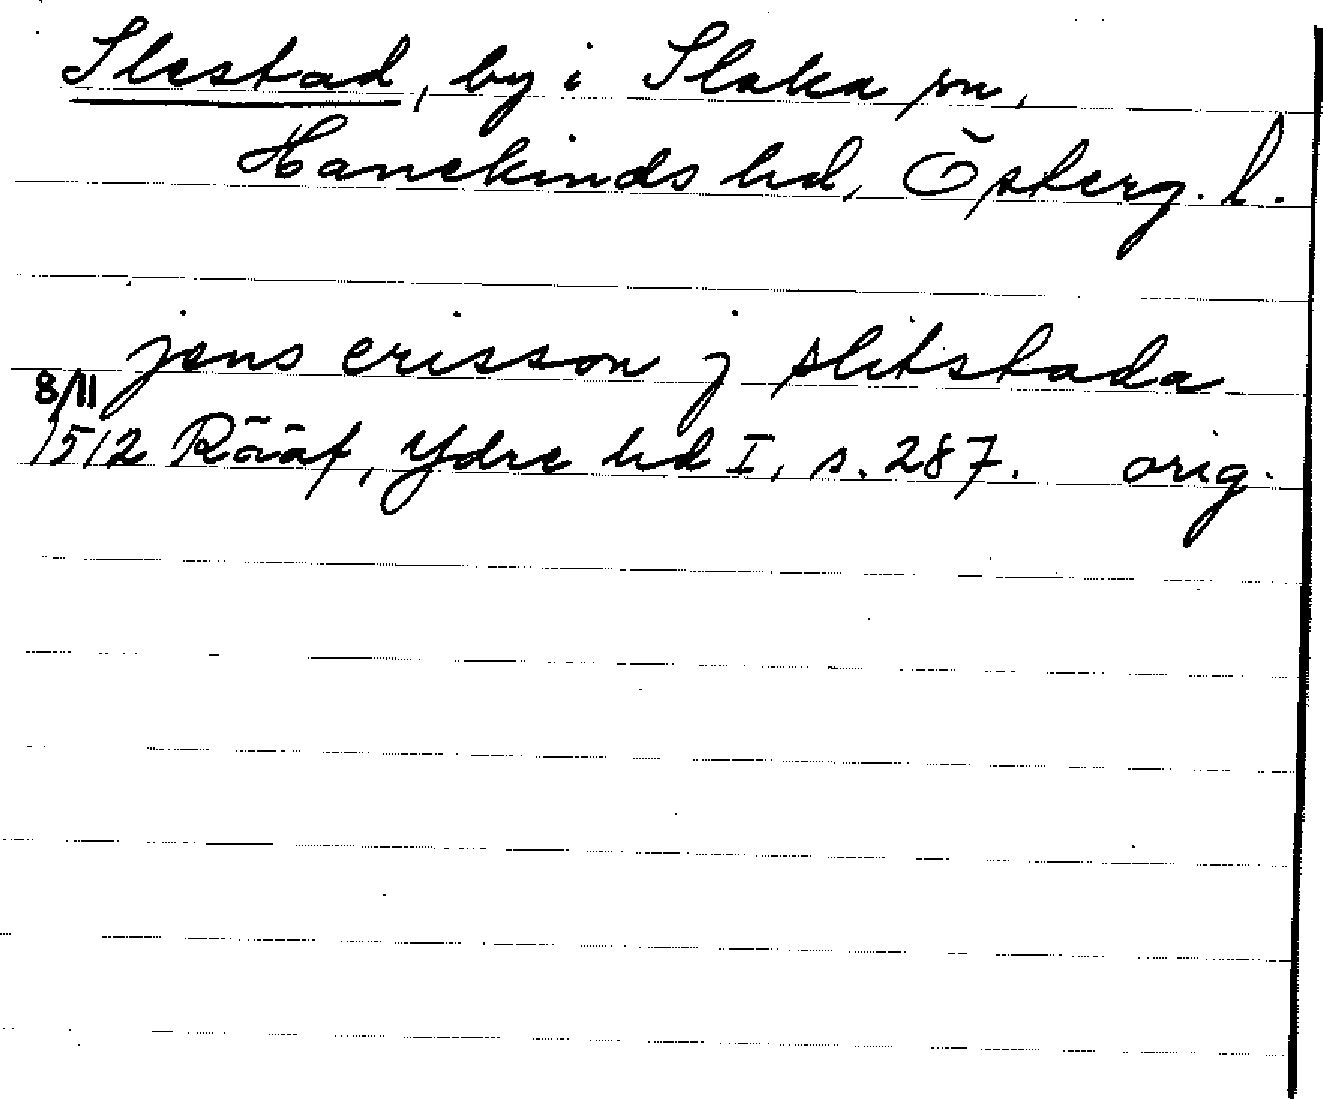 Slestad, by i Slaka sn,
Hanekinds hd, Österg. l.
jens erisson j slitstada
8/11
1512 Rääf, Ydre hd I, s. 287. orig.